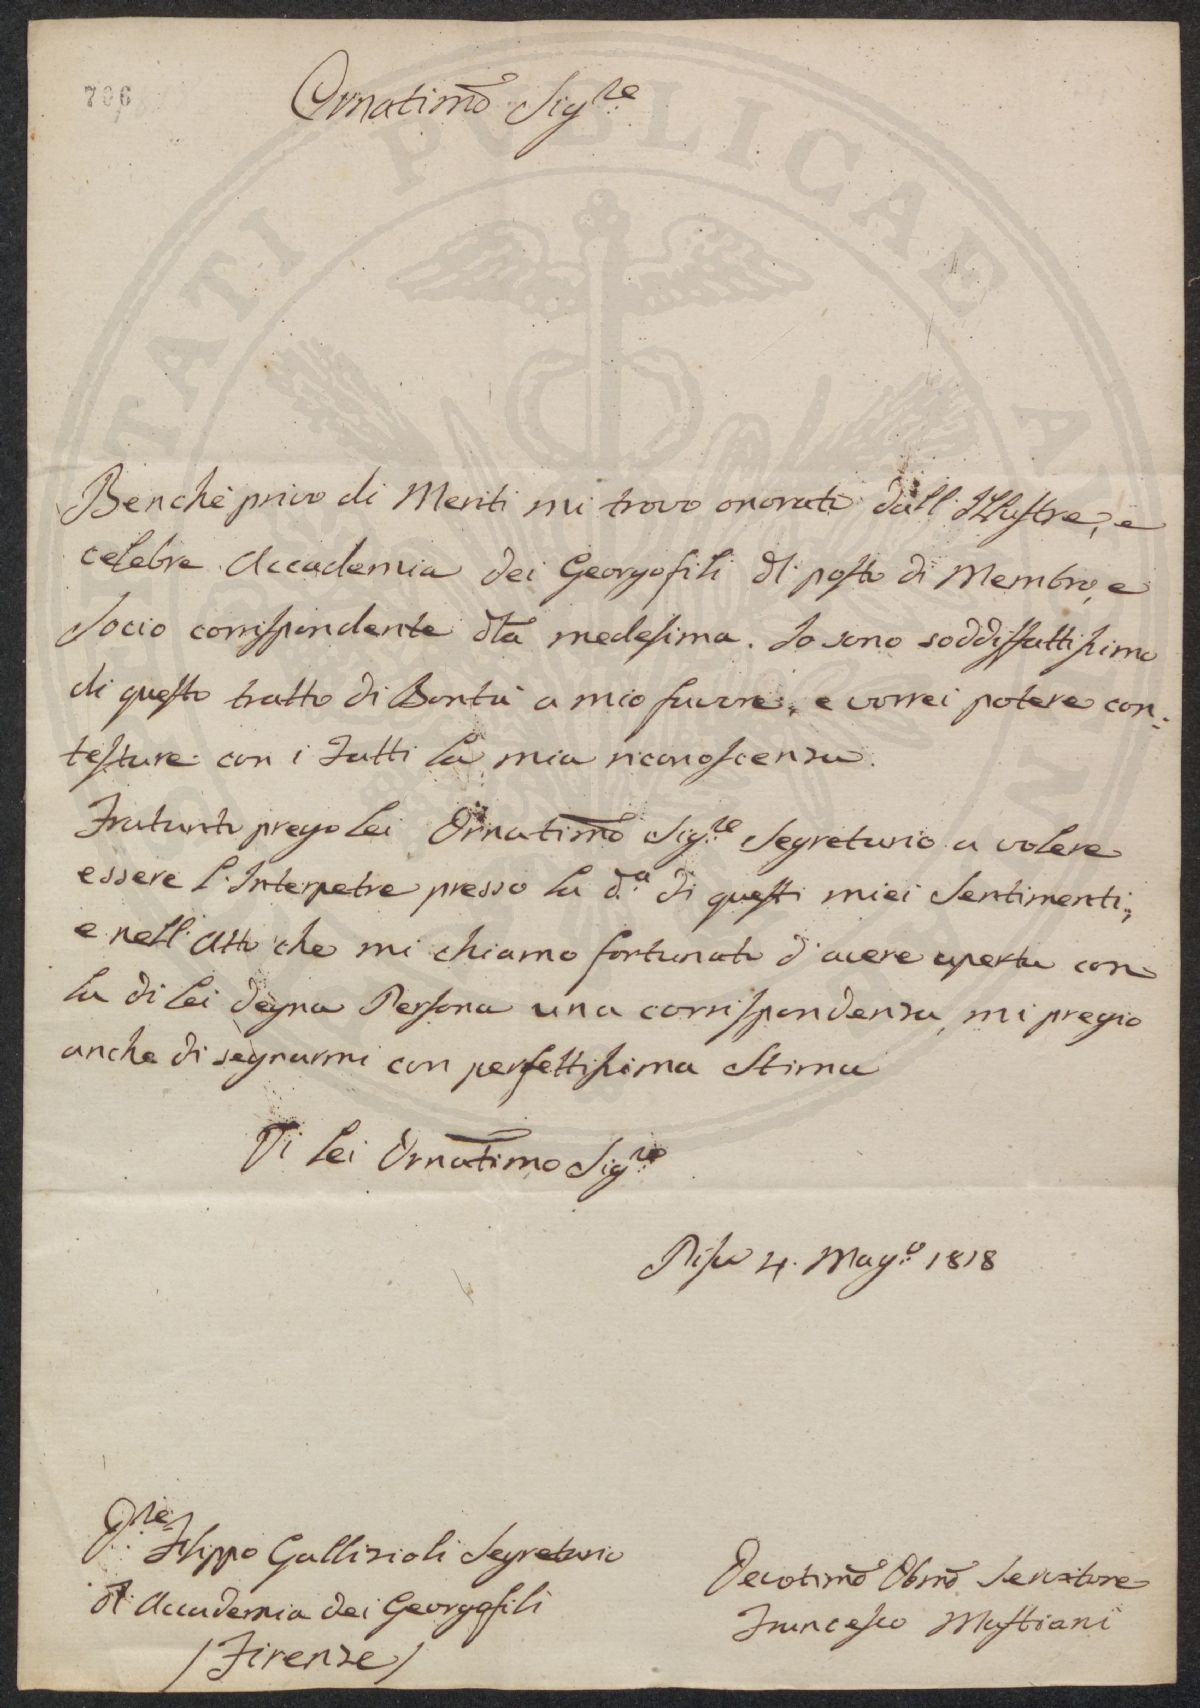 706
Ornatimo Sig.re
Benchè privo di Meriti mi trovo onorato dall'Illustre, e
celebre Accademia dei Georgofili dl posto di Membro, e
Socio corrispondente dta medesima. Io sono soddisfattissimo
di questo tratto di Bontà a mio favore, e vorrei potere con=
testare con i Fatti la mia riconoscenza.
Fratanto prego Lei Ornatimo Sig.re Segretario a volere
essere l'Interpetre presso la d.a di questi miei Sentimenti;
e nell'Atto che mi chiamo fortunato d'avere aperta con
la di Lei degna Persona una corrispondenza, mi pregio
anche di segnarmi con perfettissima Stima
Di Lei Ornatimo Sig.re
Pisa 4. Mag.o 1818
Filippo Gallizioli Segretario
dl Accademia dei Georgofili
/Firenze/
Devotimo Obmo Servitore
Francesco Mastiani
TATI PUBLICAE